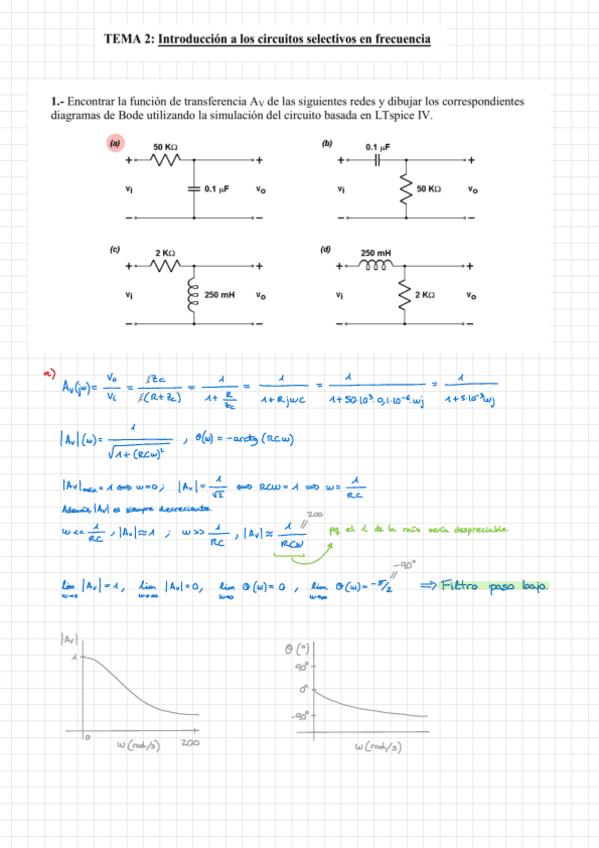 TEMA 2: Introducción a los circuitos selectivos en frecuencia
1.- Encontrar la función de transferencia AV de las siguientes redes y dibujar los correspondientes
diagramas de Bode utilizando la simulación del circuito basada en LTspice IV.
(a) 50 KΩ (b) 0.1 µF
+ + + +
vi 0.1 µF vo vi 50 KΩ vo
− − − −
(c) 2 KΩ (d) 250 mH
+ + + +
vi 250 mH vo vi 2 KΩ vo
− − − −
a) Av(jω) = Vo/Vi = iZc/i(R+Zc) = 1/(1+R/Zc) = 1/(1+Rjωc) = 1/(1+50·10³·0,1·10⁻⁶·ωj) = 1/(1+5·10⁻³ωj)
|Av|(ω) = 1/√(1+(RCω)²) , θ(ω) = −arctg(RCω)
|Av|máx = 1 ⟺ ω=0; |Av| = 1/√2 ⟺ RCω = 1 ⟹ ω = 1/RC
Además, |Av| es siempre decreciente.
200
ω << 1/RC , |Av| ≈ 1 ; ω >> 1/RC , |Av| ≈ 1/RCω pq el 1 de la raíz sería despreciable
−90°
lim ω→0 |Av| = 1, lim ω→∞ |Av| = 0, lim ω→0 θ(ω) = 0 , lim ω→∞ θ(ω) = −π/2 ⟹ Filtro paso bajo.
|Av| θ(°)
1 90°
0°
−90°
0 ω(rad/s) 200 ω(rad/s)